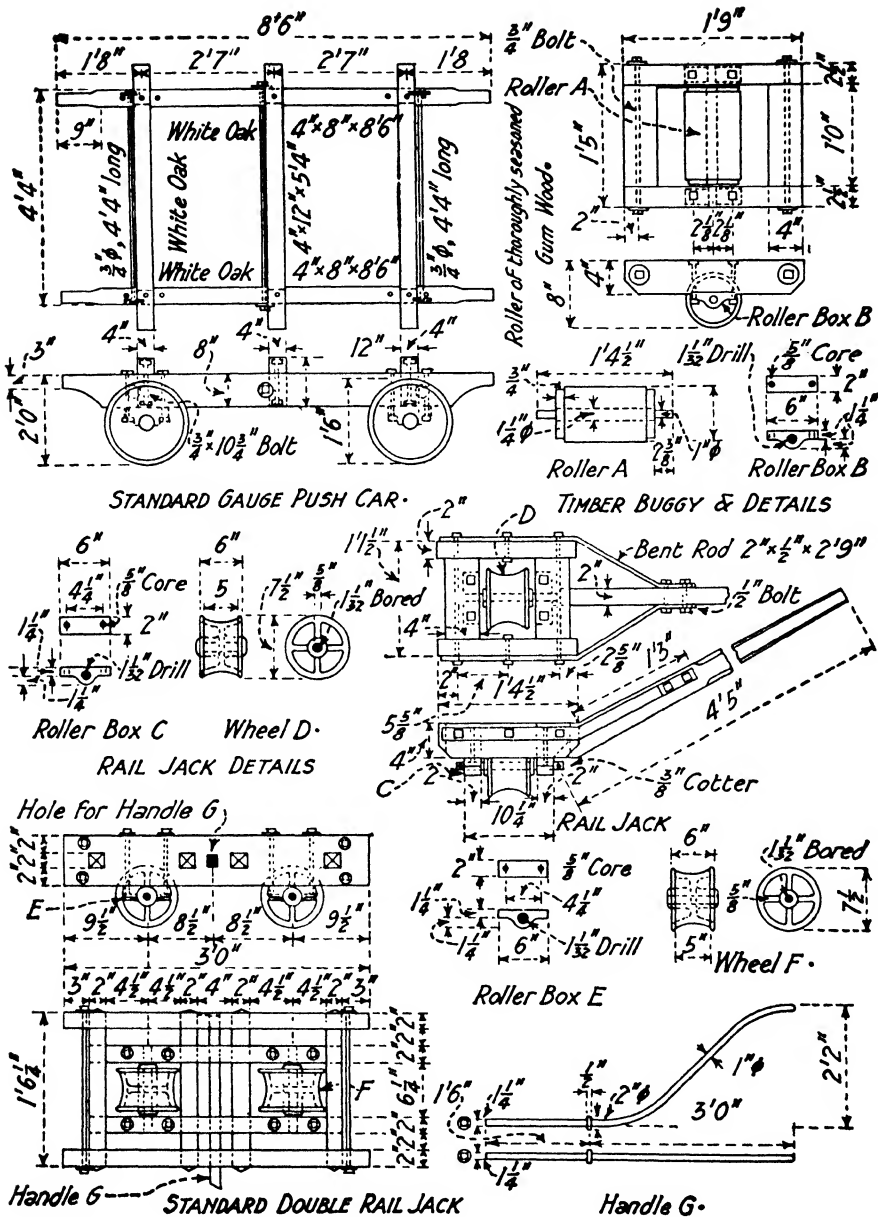 8'6"
1'8" 2'7" 2'7" 1'8
9"
4'4"
White Oak 4"×8"×8'6"
3/4"ϕ, 4'4" long
White Oak
4"×12"×5'4"
3/4"ϕ, 4'4" long
White Oak 4"×8"×8'6"
4" 4" 12" 4"
3" 8"
2'0" 1'6"
3/4"×10 3/4" Bolt
STANDARD GAUGE PUSH CAR.
3/4" Bolt
1'9"
Roller A
2 1/2"
1'5" 1'0"
2 1/2"
2" 2 1/8" 2 1/8" 4"
Roller of thoroughly seasoned
Gum Wood.
8" 4"
Roller Box B
1'4 1/2"
3/4"
1 1/4"ϕ 1"ϕ
2 3/8"
Roller A
1 1/32" Drill 5/8" Core
2"
6" 1 1/4"
Roller Box B
TIMBER BUGGY & DETAILS
6" 6"
4 1/4" 5/8" Core 5 7 1/2" 5/8" 1 1/32" Bored
2"
1 1/4" 1 1/32" Drill
1 1/4"
Roller Box C Wheel D.
RAIL JACK DETAILS
2" D
1'1 1/2" Bent Rod 2"×1/2"×2'9"
2" 1/2" Bolt
4"
2 5/8" 1'3"
2" 1'4 1/2"
5 5/8" 4'5"
4"
C 2" 2" 3/8" Cotter
10 1/4"
RAIL JACK
Hole for Handle G
2" 2" 2"
E
9 1/2" 8 1/2" 8 1/2" 9 1/2"
3'0"
3" 2" 4 1/2" 4 1/2" 2" 4" 2" 4 1/2" 4 1/2" 2" 3"
2" 2" 2"
1'6 1/4" F 6 1/4"
2" 2" 2"
Handle G
STANDARD DOUBLE RAIL JACK
2" 5/8" Core
4 1/4"
1 1/4"
1 1/4" 6" 1 1/32" Drill
Roller Box E
6" 1 1/32" Bored
5/8" 7 1/2
5"
Wheel F.
1"ϕ 2'2"
1'6" 1 1/4" 1/2" 2"ϕ 3'0"
1 1/4"
Handle G.